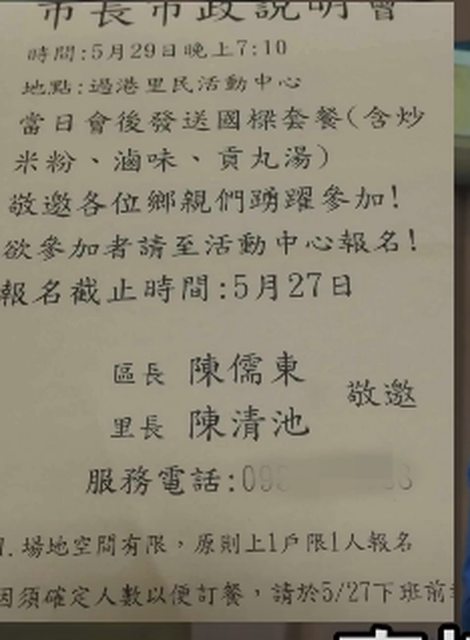 市長市政說明會
時間:5月29日晚上7:10
地點:過港里民活動中心
當日會後發送國樑套餐(含炒
米粉、滷味、貢丸湯)
敬邀各位鄉親們踴躍參加!
欲參加者請至活動中心報名!
報名截止時間:5月27日
區長 陳儒東
里長 陳清池
敬邀
服務電話:09
1.場地空間有限，原則上1戶限1人報名
因須確定人數以便訂餐，請於5/27下班前